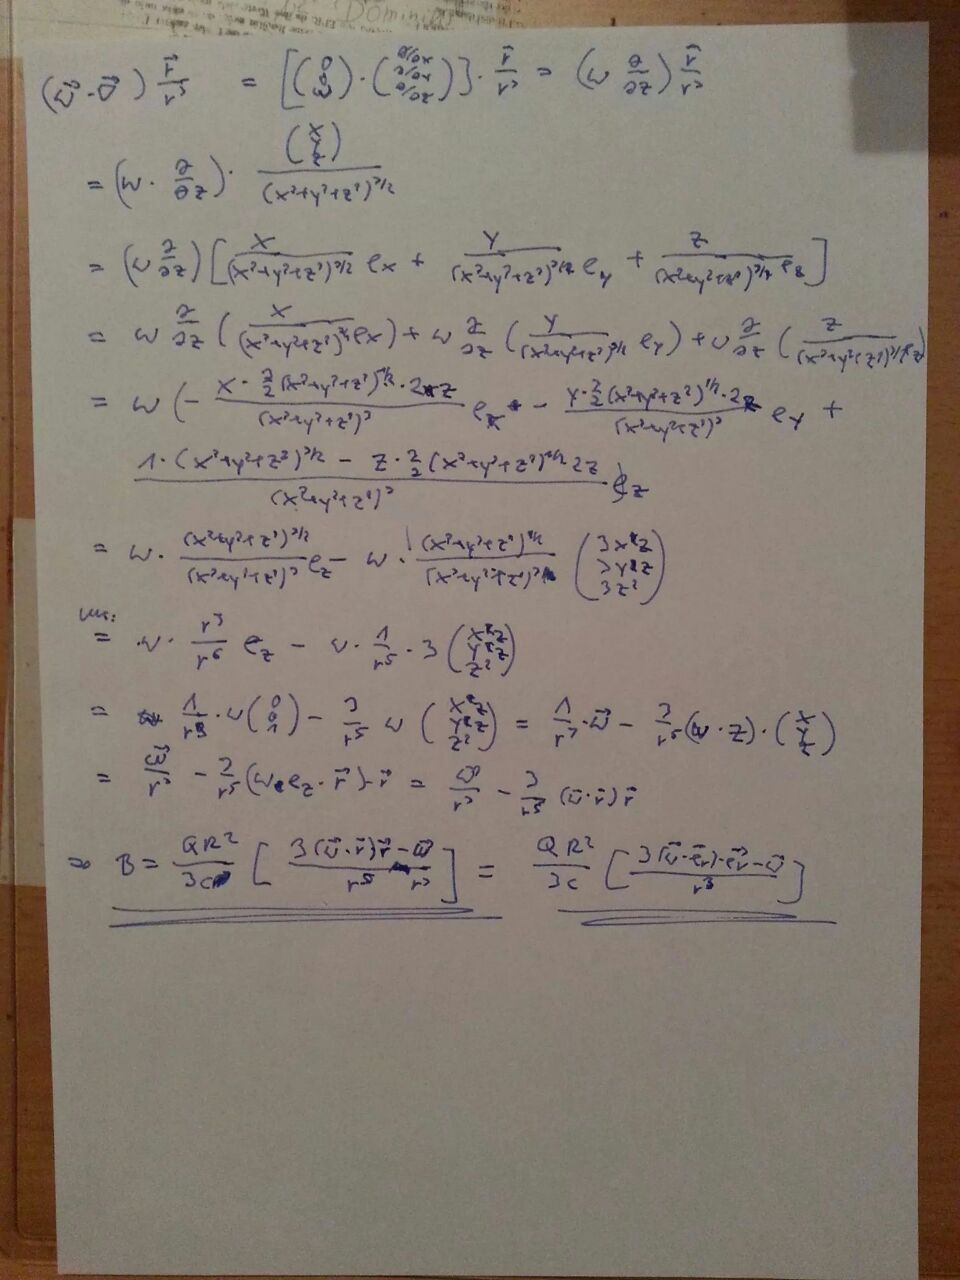 (ω⃗·∇⃗) r⃗/r³ = [(0 0 ω)·(∂/∂x ∂/∂y ∂/∂z)]·r⃗/r³ = (ω ∂/∂z) r⃗/r³
= (ω·∂/∂z)·(x y z)/(x²+y²+z²)^3/2
= (ω ∂/∂z)[x/(x²+y²+z²)^3/2 e_x + y/(x²+y²+z²)^3/2 e_y + z/(x²+y²+z²)^3/2 e_z]
= ω ∂/∂z (x/(x²+y²+z²)^3/2 e_x) + ω ∂/∂z (y/(x²+y²+z²)^3/2 e_y) + ω ∂/∂z (z/(x²+y²+z²)^3/2 e_z)
= ω (- x·3/2(x²+y²+z²)^1/2·2z/(x²+y²+z²)³ e_x - y·3/2(x²+y²+z²)^1/2·2z/(x²+y²+z²)³ e_y +
1·(x²+y²+z²)^3/2 - z·3/2(x²+y²+z²)^1/2 2z/(x²+y²+z²)³ ) e_z
= ω·(x²+y²+z²)^3/2/(x²+y²+z²)³ e_z - ω·(x²+y²+z²)^1/2/(x²+y²+z²)³ (3xz 3yz 3z²)
= ω·r³/r⁶ e_z - ω·1/r⁵·3 (xz yz z²)
= 1/r³·ω(0 0 1) - 3/r⁵ ω (xz yz z²) = 1/r³·ω⃗ - 3/r⁵(ω·z)·(x y z)
= ω⃗/r³ - 3/r⁵(ω·e_z·r⃗)·r⃗ = ω⃗/r³ - 3/r⁵ (ω⃗·r⃗)r⃗
⇒ B = QR²/3c [3(ω⃗·r⃗)r⃗/r⁵ - ω⃗/r³] = QR²/3c [3(ω⃗·e⃗_r)·e⃗_r - ω⃗/r³]